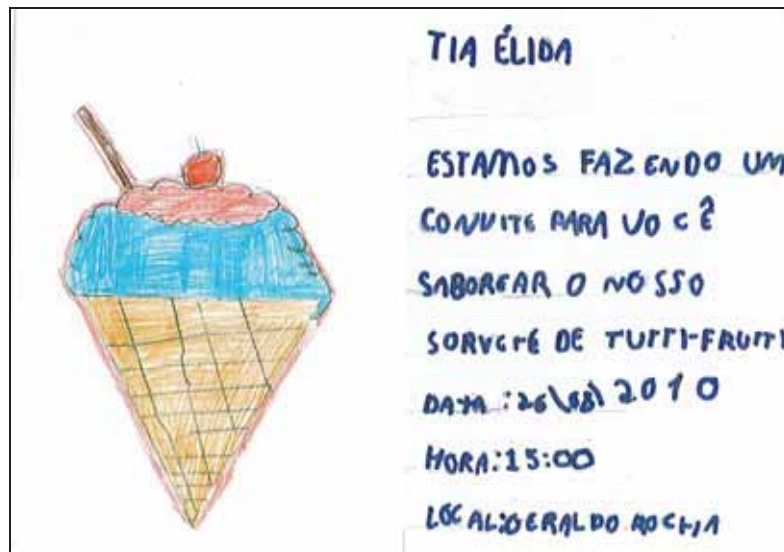 TIA ÉLIDA
ESTAMOS FAZENDO UM
CONVITE PARA VOCÊ
SABOREAR O NOSSO
SORVETE DE TUTTI-FRUTTI
DATA:26\08\2010
HORA:15:00
LOCAL:GERALDO ROCHA